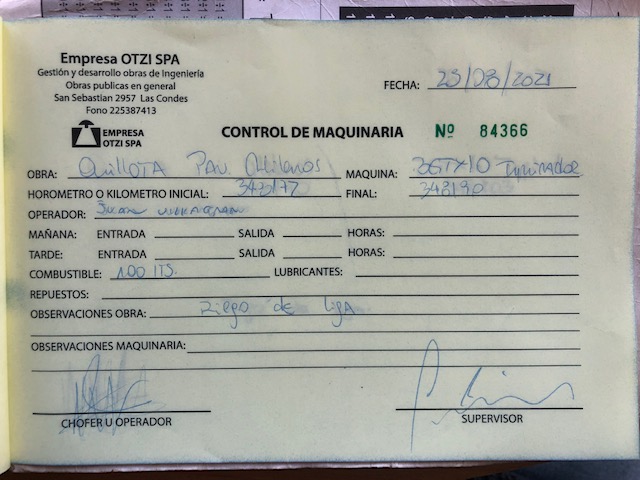 Empresa OTZI SPA
Gestión y desarrollo obras de Ingeniería
Obras publicas en general
San Sebastian 2957 Las Condes
Fono 225387413
FECHA: 23/08/2021
EMPRESA
OTZI SPA
CONTROL DE MAQUINARIA Nº 84366
OBRA: Quillota Pav MAQUINA:
HOROMETRO O KILOMETRO INICIAL: FINAL:
OPERADOR:
MAÑANA: ENTRADA SALIDA HORAS:
TARDE: ENTRADA SALIDA HORAS:
COMBUSTIBLE: 100 LUBRICANTES:
REPUESTOS:
OBSERVACIONES OBRA: Riego de liga
OBSERVACIONES MAQUINARIA:
CHOFER U OPERADOR SUPERVISOR